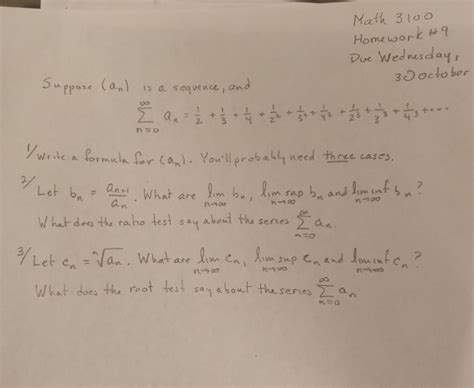 Math 3100
Homework #9
Due Wednesday,
30 October
Suppose (aₙ) is a sequence, and
∞
∑ aₙ = 1/2 + 1/3 + 1/4 + 1/2² + 1/3² + 1/4² + 1/2³ + 1/3³ + 1/4³ + ...
n=0
1/ Write a formula for (aₙ). You'll probably need three cases.
2/ Let bₙ = aₙ₊₁/aₙ. What are lim n→∞ bₙ, lim sup n→∞ bₙ and lim inf n→∞ bₙ?
What does the ratio test say about the series ∞∑n=0 aₙ.
3/ Let cₙ = ⁿ√aₙ. What are lim n→∞ cₙ, lim sup n→∞ cₙ and lim inf n→∞ cₙ?
What does the root test say about the series ∞∑n=0 aₙ